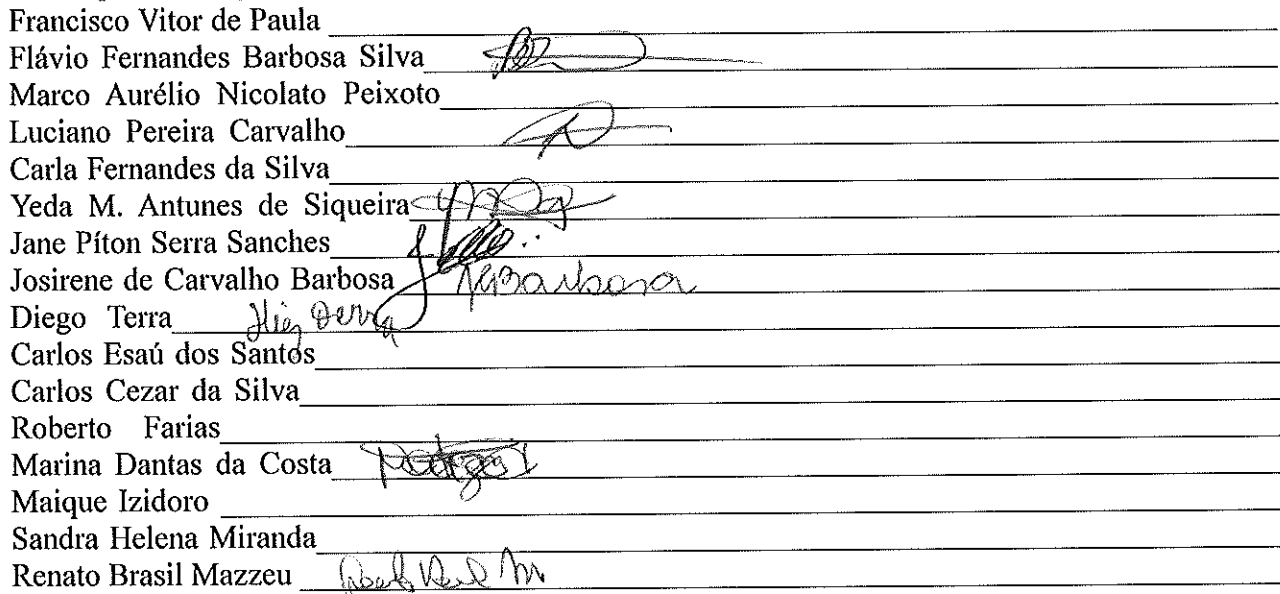 Francisco Vitor de Paula
Flávio Fernandes Barbosa Silva
Marco Aurélio Nicolato Peixoto
Luciano Pereira Carvalho
Carla Fernandes da Silva
Yeda M. Antunes de Siqueira
Jane Píton Serra Sanches
Josirene de Carvalho Barbosa Barbosa
Diego Terra Diego Terra
Carlos Esaú dos Santos
Carlos Cezar da Silva
Roberto Farias
Marina Dantas da Costa
Maique Izidoro
Sandra Helena Miranda
Renato Brasil Mazzeu